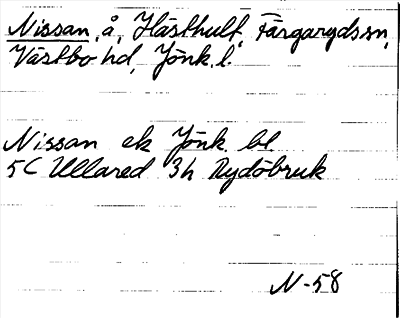 Nissan, å, Hästhult, Färgarydssn,
Västbo hd, Jönk. l.
Nissan ek Jönk. bl.
5C Ullared 3h Rydöbruk
N-58